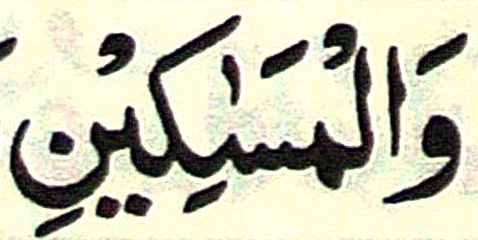 وَالْمَسٰكِيْنِ